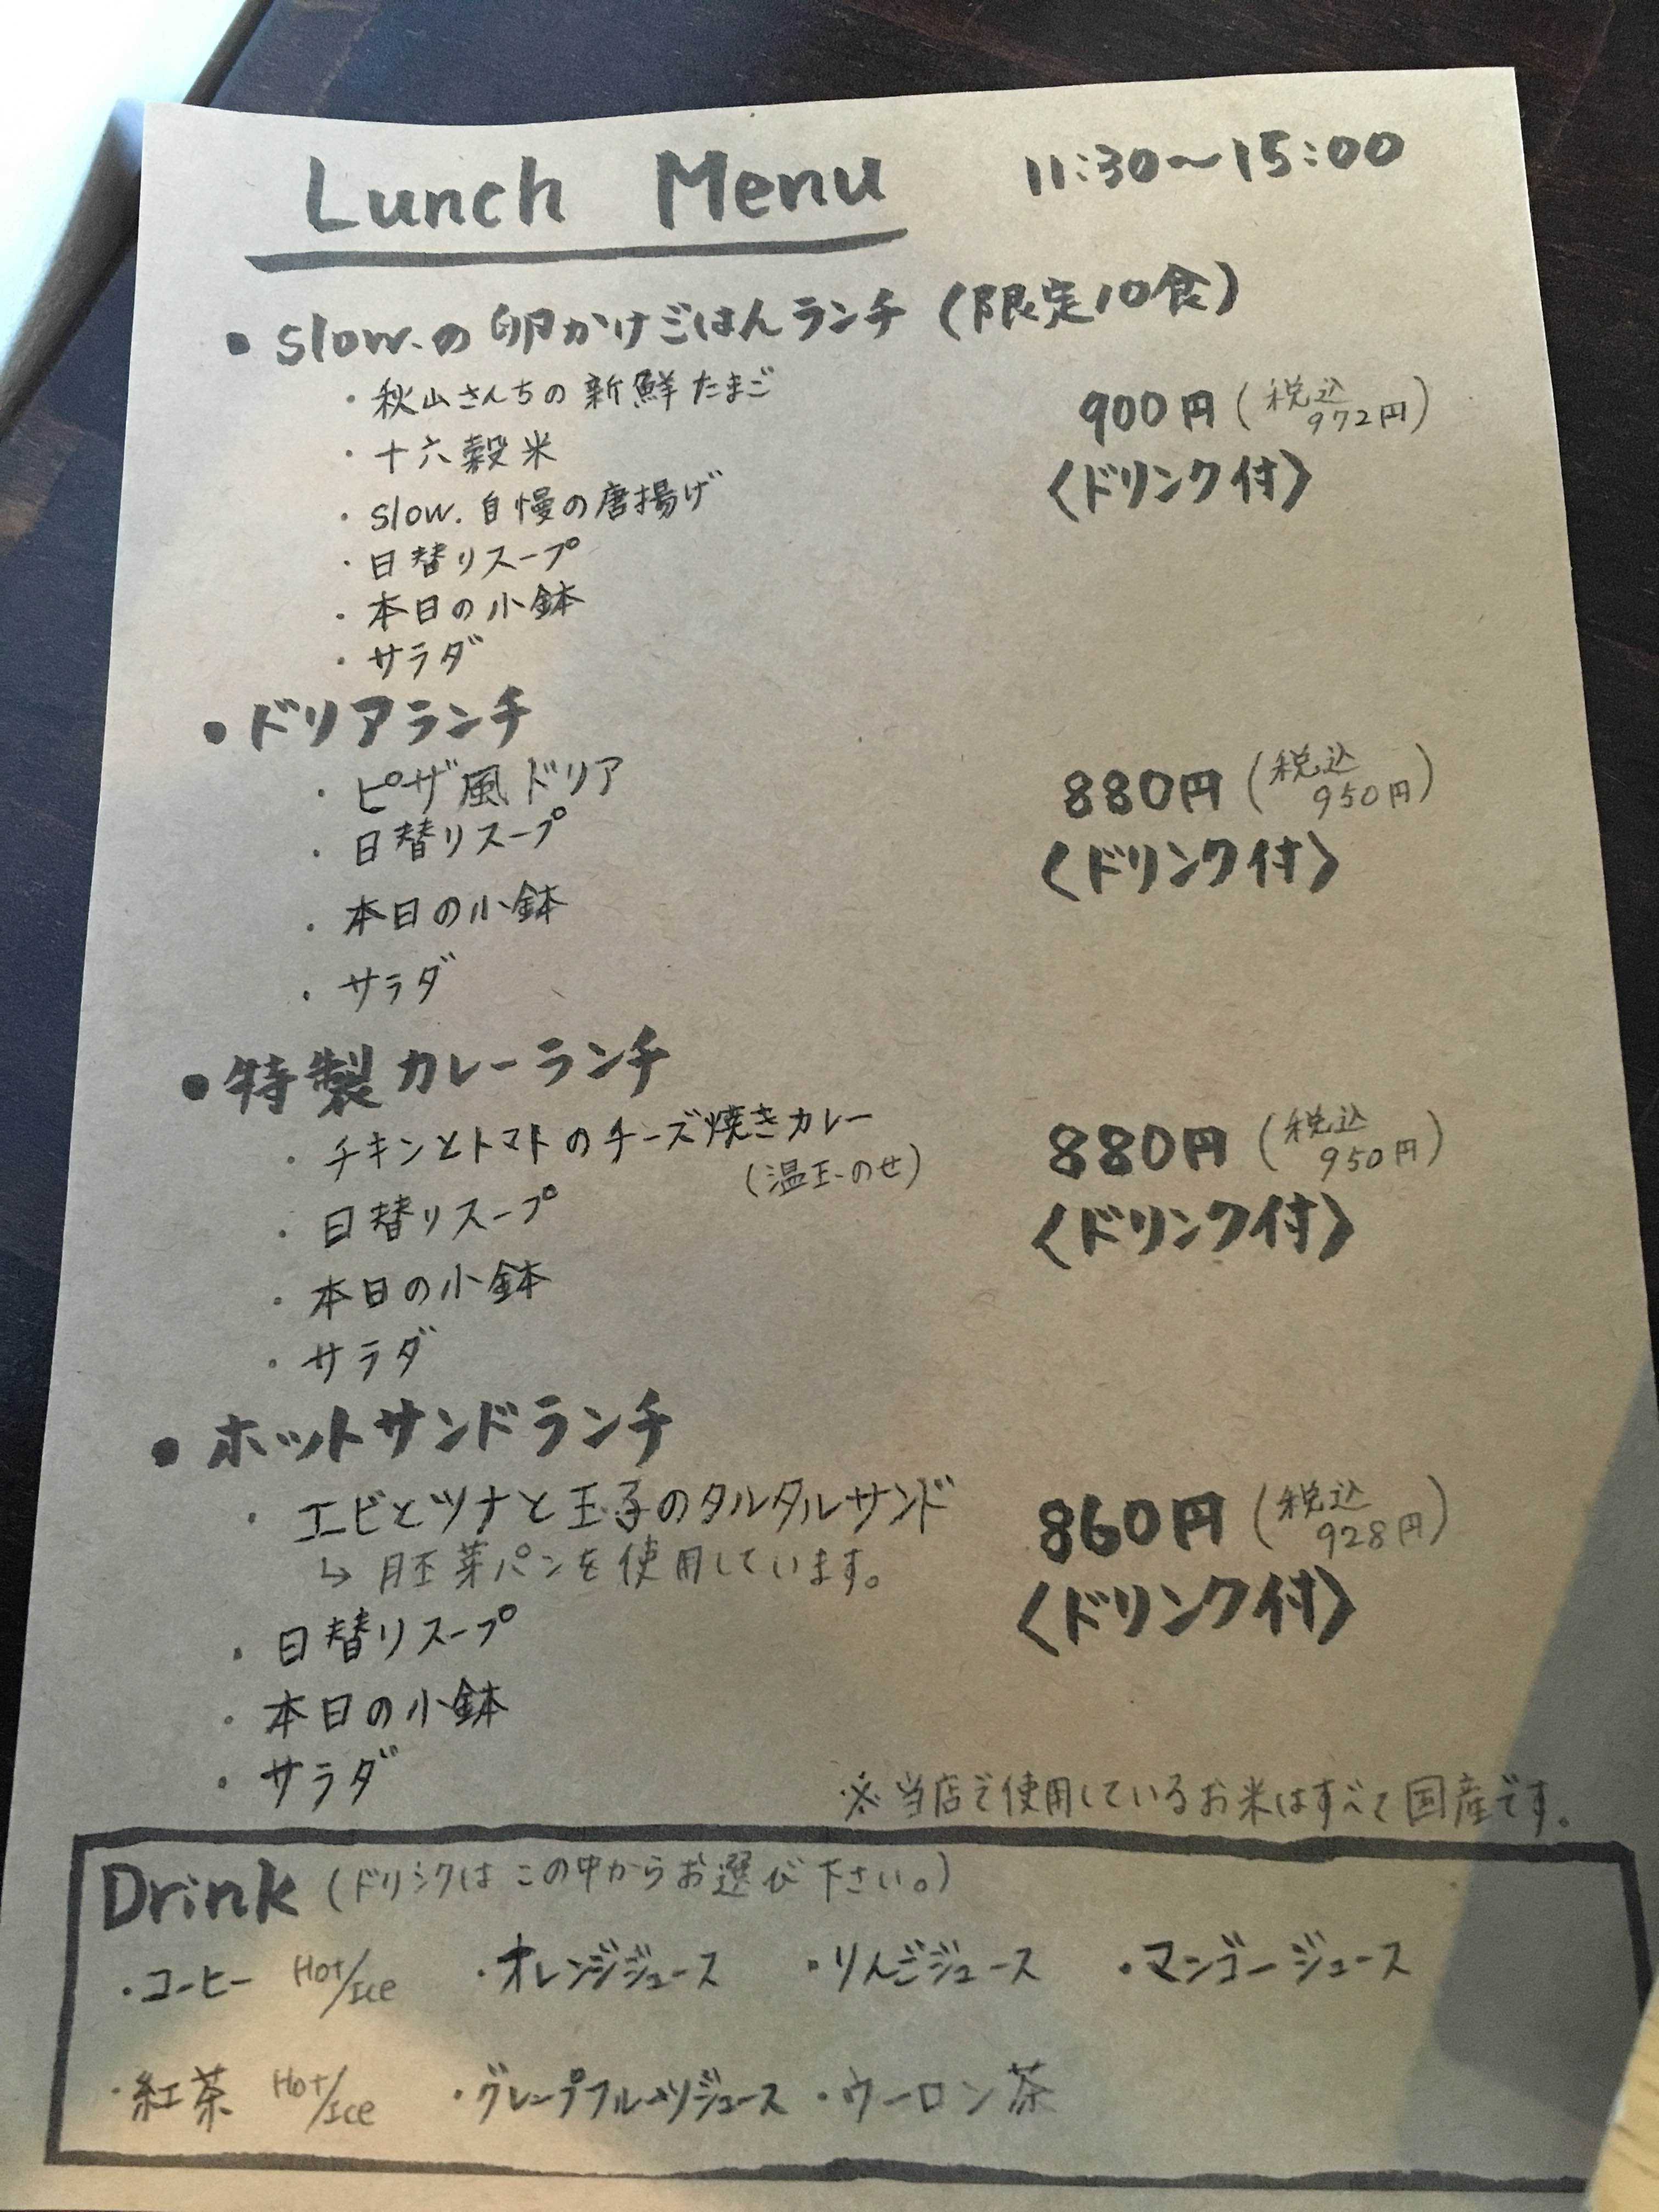 Lunch Menu 11:30〜15:00
• slow.の卵かけごはんランチ (限定10食)
・秋山さんちの新鮮たまご
900円 (税込 972円)
・十六穀米
〈ドリンク付〉
・slow.自慢の唐揚げ
・日替りスープ
・本日の小鉢
・サラダ
• ドリアランチ
・ピザ風ドリア
880円 (税込 950円)
・日替りスープ
〈ドリンク付〉
・本日の小鉢
・サラダ
• 特製カレーランチ
・チキンとトマトのチーズ焼きカレー
(温玉のせ)
880円 (税込 950円)
・日替りスープ
〈ドリンク付〉
・本日の小鉢
・サラダ
• ホットサンドランチ
・エビとツナと玉子のタルタルサンド
860円 (税込 928円)
↳ 胚芽パンを使用しています。
〈ドリンク付〉
・日替りスープ
・本日の小鉢
・サラダ
※当店で使用しているお米はすべて国産です。
Drink (ドリンクはこの中からお選び下さい。)
・コーヒー Hot/Ice ・オレンジジュース ・りんごジュース ・マンゴージュース
・紅茶 Hot/Ice ・グレープフルーツジュース ・ウーロン茶